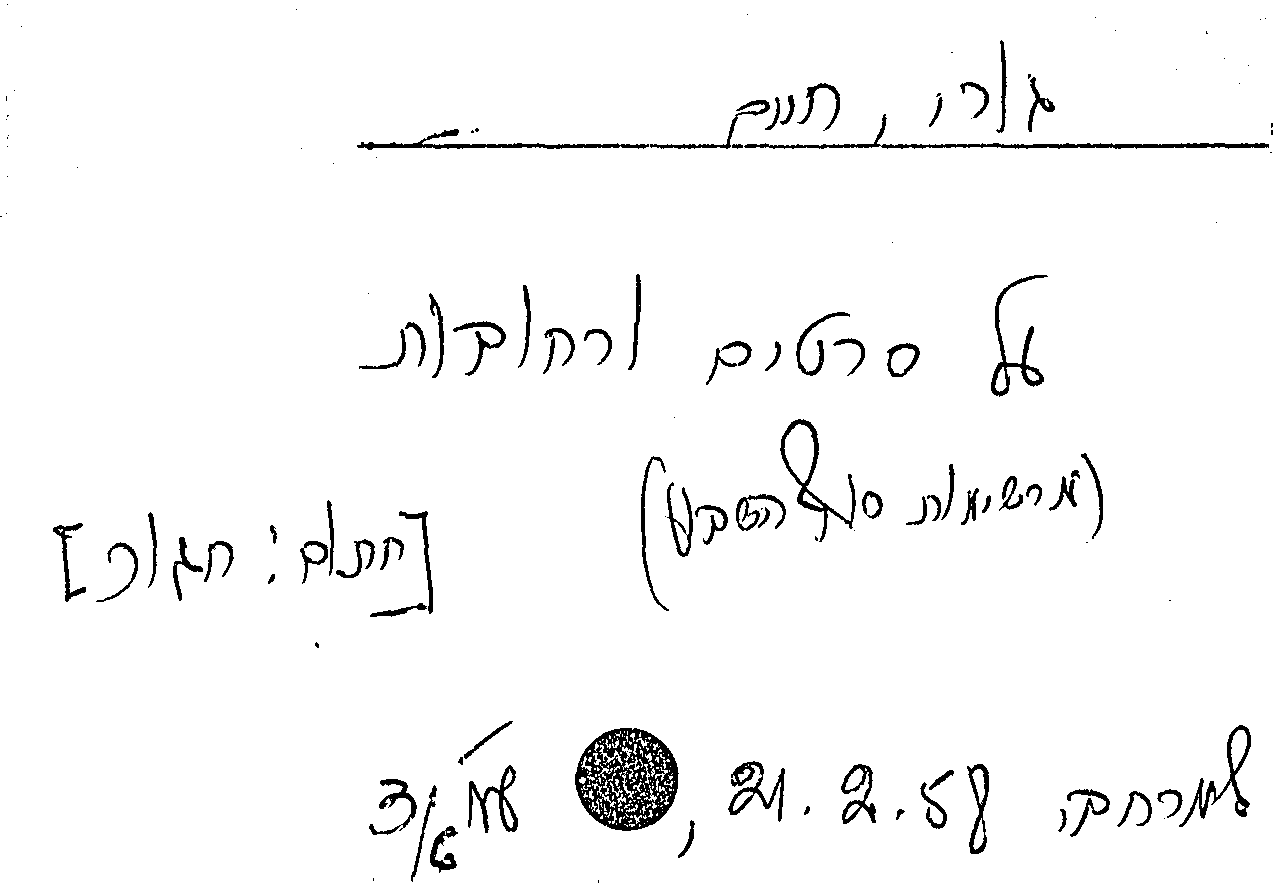 גורי, חיים
על סרטים ורחובות
(מרשימות סוף השבוע)
[חתום: חגור]
למרחב, 21.2.58, עמ' 3/6